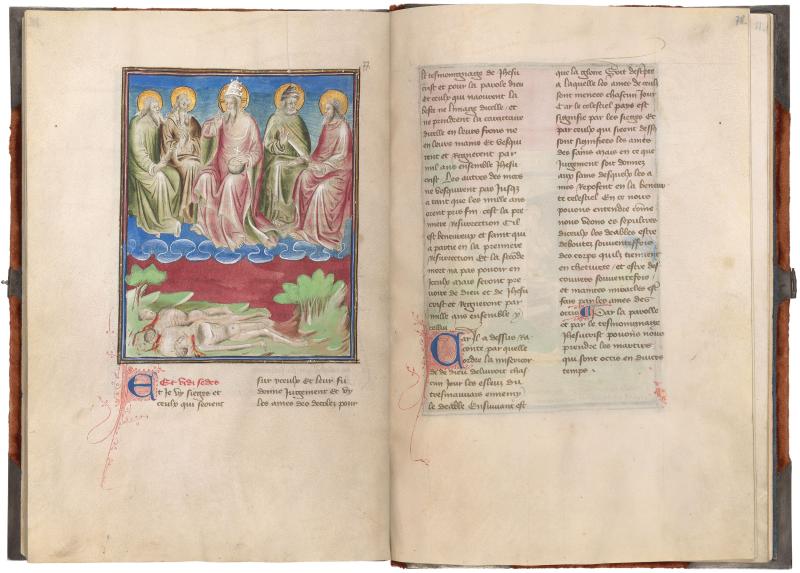 77
Et vidi sedes
Et Je vy sieges et
ceulx qui seoient
sur yceulx et leur fu
donne Jugement et vy
les ames des decolez pour
78
le tesmoingnage de Jhesu
crist et pour la parole dieu
et ceulx qui naourent la
beste ne limage dicelle et
ne prindrent la caractaire
dicelle en leurs frons ne
en leurs mains et vesqui
rent et Regnerent par
mil ans ensemble Jhesu
crist. Les autres des mors
ne vesquirent pas Jusqz
a tant que les mille ans
orent prins fin cest la pre
miere resurrection Cil
est beneureux et saint qui
a partie en la premiere
resurrection Et la seconde
mort na pas pouoir en
yceulx mais seront pre
voire de dieu et de Jhesu
crist et Regneront par
mille ans ensemble y
cellui
Car il a dessus Ra
conte par quelle
ordre la misericor
de de dieu delivroit chas
cun Jour les esleuz du
tresmauvais ennemy
le deable Ensuivant est
que la gloire Soit descripte
a laquelle les ames de ceulx
sont menees chascun Jour
Car le celestiel pays est
signifie par les sieges et
par ceulx qui sieent dessus
sont signifiees les ames
des sains Mais en ce que
Jugement soit donnez
aux sains desquelx les a
mes reposent en la beneur
te celestiel En ce nous
povons entendre comme
nous veons es sepulcres
diceulx les deables estre
deboutez souventeffois
des corps quilz tiennent
en chetivete / et estre des
couvers souventefois /
et maintes miracles est
fais par les ames des
occis Par la parolle
et par le tesmoingnage
Jhesucrist povons nous
prendre les martirs
qui sont occis en divers
temps .